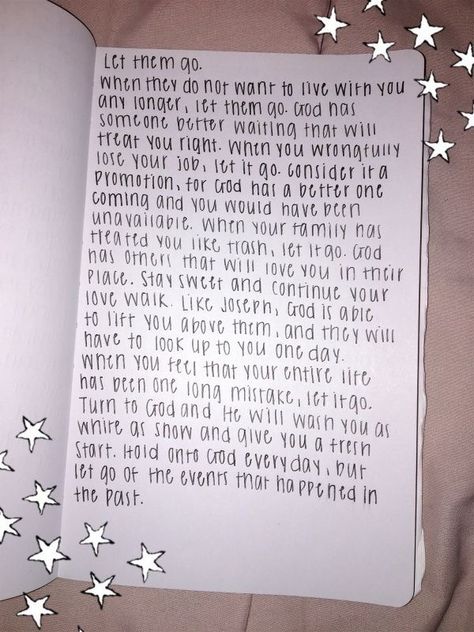 Let them go.
When they do not want to live with you
any longer, let them go. God has
someone better waiting that will
treat you right. When you wrongfully
lose your job, let it go. Consider it a
promotion, for God has a better one
coming and you would have been
unavailable. When your family has
treated you like trash, let it go. God
has others that will love you in their
place. Stay sweet and continue your
love walk. Like Joseph, God is able
to lift you above them, and they will
have to look up to you one day.
When you feel that your entire life
has been one long mistake, let it go.
Turn to God and He will wash you as
white as snow and give you a fresh
start. Hold onto God everyday, but
let go of the events that happened in
the past.